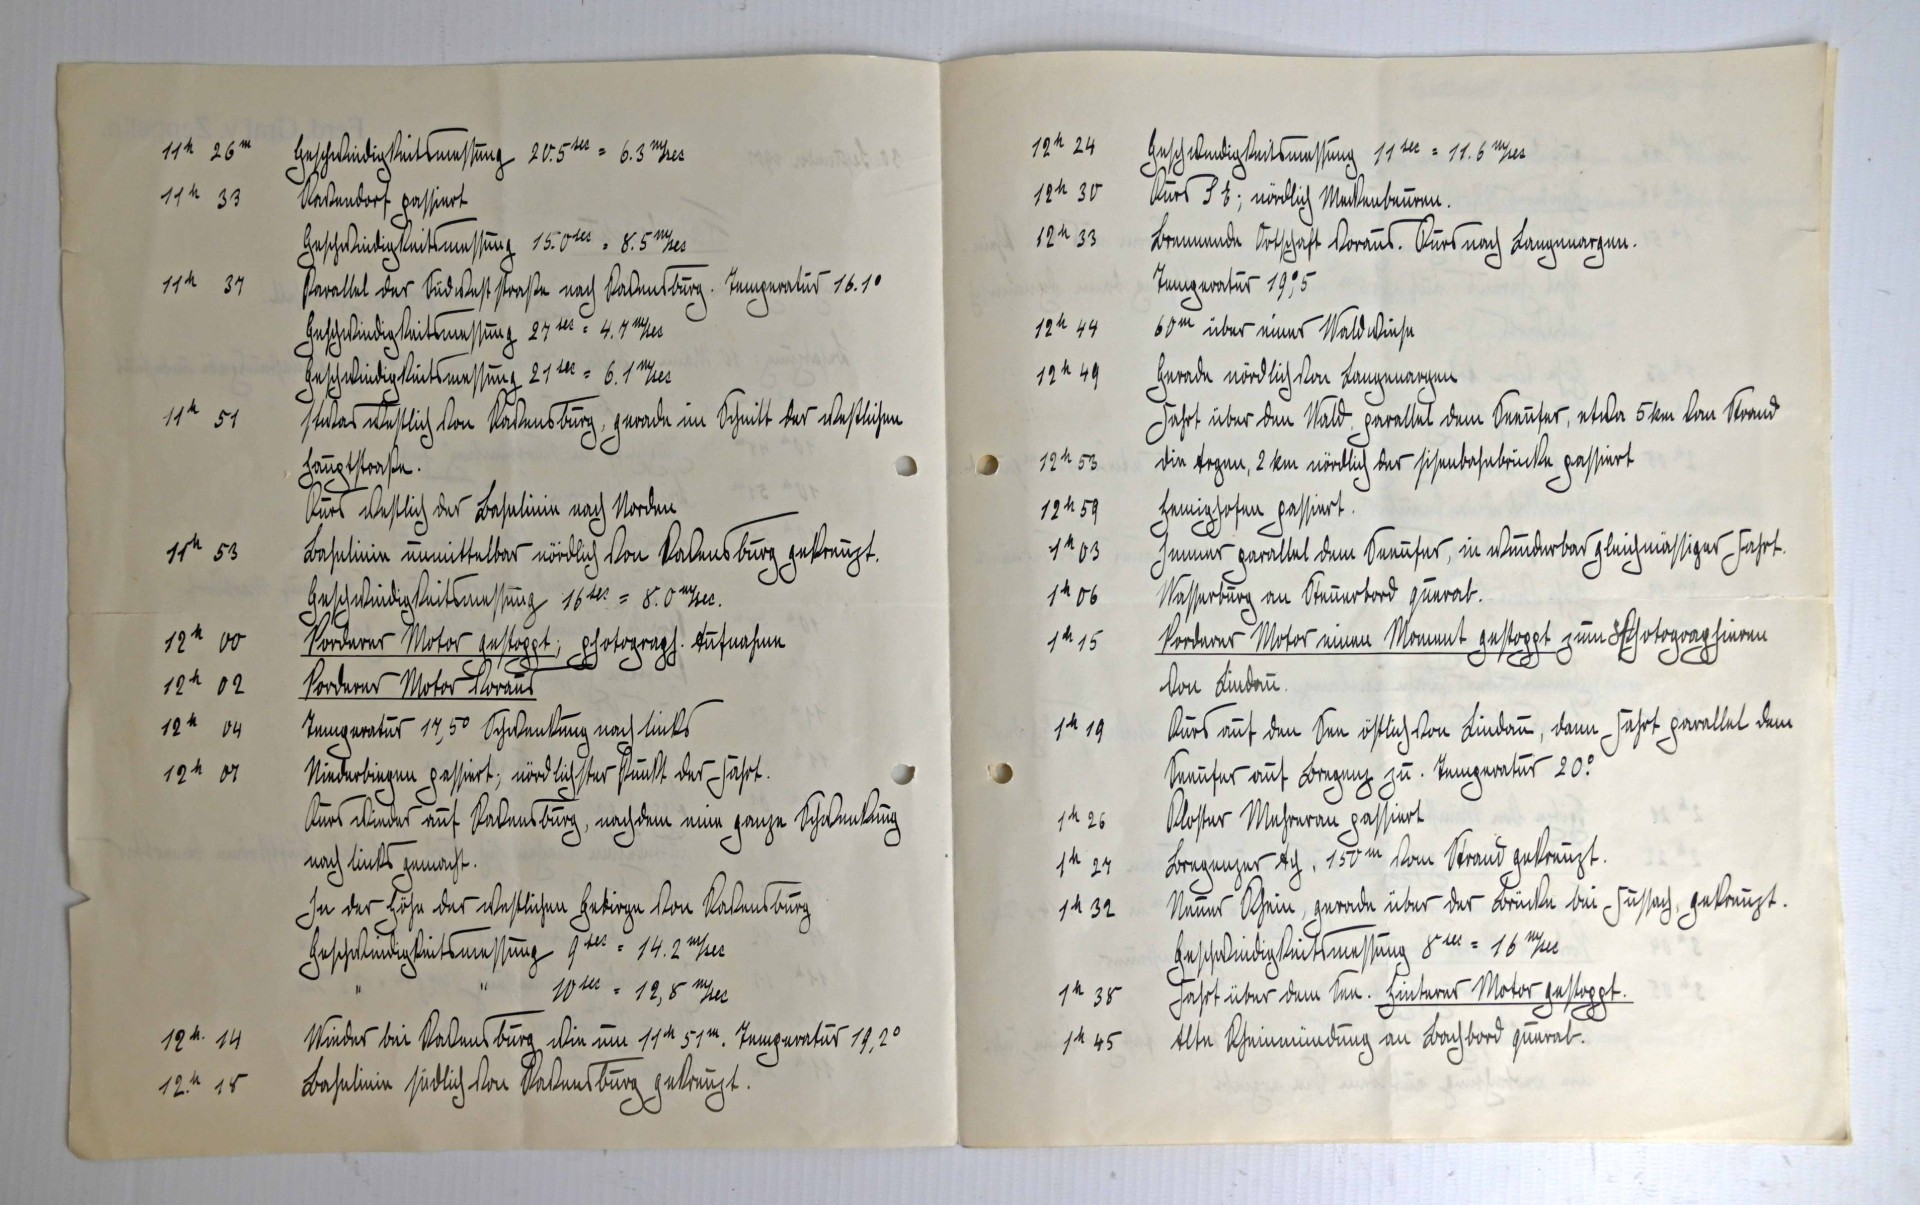 11h 26m Geschwindigkeitsmessung 20.5sec = 6.3 m/sec
11h 33 Ravendorf passiert
Geschwindigkeitsmessung 15.0sec = 8.5 m/sec
11h 37 Parallel der Südweststraße nach Ravensburg. Temperatur 16.1°
Geschwindigkeitsmessung 27sec = 4.7 m/sec
Geschwindigkeitsmessung 21sec = 6.1 m/sec
11h 51 Etwas westlich von Ravensburg, gerade im Schnitt der westlichen
Hauptstraße.
Kurs westlich der Bahnlinie nach Norden
11h 53 Bahnlinie unmittelbar nördlich von Ravensburg gekreuzt.
Geschwindigkeitsmessung 16sec = 8.0 m/sec.
12h 00 Vorderer Motor gestoppt; photograph. Aufnahme
12h 02 Vorderer Motor voraus
12h 04 Temperatur 17,5° Schwenkung nach links
12h 07 Niederbiegen passiert; nördlichster Punkt der Fahrt.
Kurs wieder auf Ravensburg, nachdem eine ganze Schwenkung
nach links gemacht.
In der Höhe der westlichen Gebirge von Ravensburg
Geschwindigkeitsmessung 9sec = 14.2 m/sec
" " 10sec = 12,8 m/sec
12h. 14 Wieder bei Ravensburg wie um 11h 51m. Temperatur 19,2°
12.h 18 Bahnlinie südlich von Ravensburg gekreuzt.
12h 24 Geschwindigkeitsmessung 11sec = 11.6 m/sec
12h 30 Kurs SE; nördlich Meckenbeuren.
12h 33 Brennende Ortschaft voraus. Kurs nach Langenargen.
Temperatur 19°,5
12h 44 60m über einer Waldwiese
12h 49 Gerade nördlich von Langenargen
Fahrt über den Wald, parallel dem Seeufer, etwa 5 km vom Strand
12h 53 die Argen, 2 km nördlich der Eisenbahnbrücke passiert
12h 59 Hemighofen passiert.
1h 03 Immer parallel dem Seeufer, in wunderbar gleichmässiger Fahrt.
1h 06 Wasserburg an Steuerbord querab.
1h 15 Vorderer Motor einen Moment gestoppt zum Photographieren
von Lindau.
1h 19 Kurs auf den See östlich von Lindau, dann Fahrt parallel dem
Seeufer auf Bregenz zu. Temperatur 20°
1h 26 Kloster Mehrerau passiert
1h 27 Bregenzer Ach, 150m vom Strand gekreuzt.
1h 32 Neuer Rhein, gerade über der Brücke bei Fussach, gekreuzt.
Geschwindigkeitsmessung 8sec = 16 m/sec
1h 38 Fahrt über dem See. Hinterer Motor gestoppt.
1h 45 Alte Rheinmündung an Backbord querab.